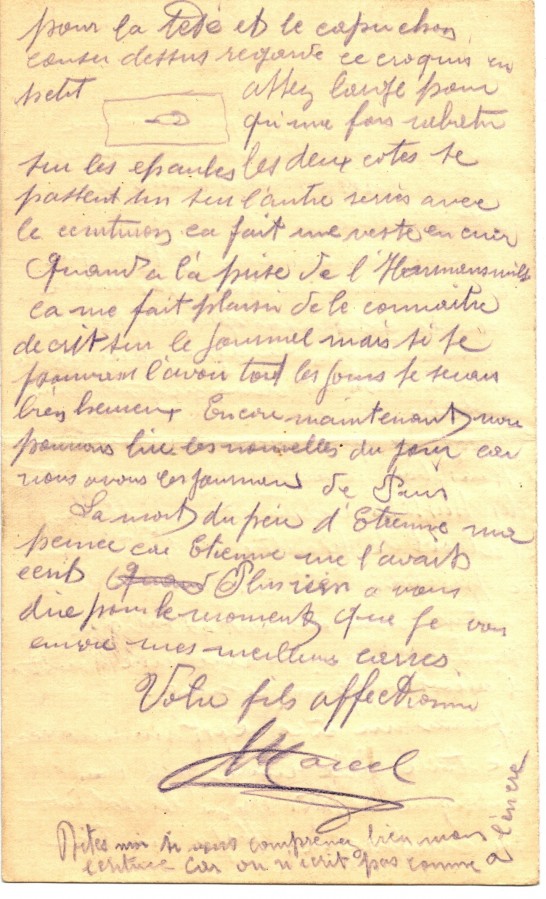 pour la tete et le capuchon
cousu dessus regarde ce croquis en
petit assez large pour
qu'une fois rabattu
sur les epaules les deux cotes se
passent un sur l'autre serres avec
le ceinturon ca fait une veste en cuir
Quand a la prise de l'Harmanswill
ca me fait plaisir de le connaitre
decrit sur le journal mais si je
pouvais l'avoir tout les jours je serais
bien heureux Encore maintenant nous
pouvons lire les nouvelles du jour car
nous avons les journaux de Paris
La mort du père d'Etienne me
peine car Etienne me l'avait
ecrit Plus rien a vous
dire pour le moment que je vous
envoie mes meilleures
Votre fils affectionné
Marcel
Dites moi si vous comprenez bien mon
ecriture car on n'ecrit pas comme a l'encre